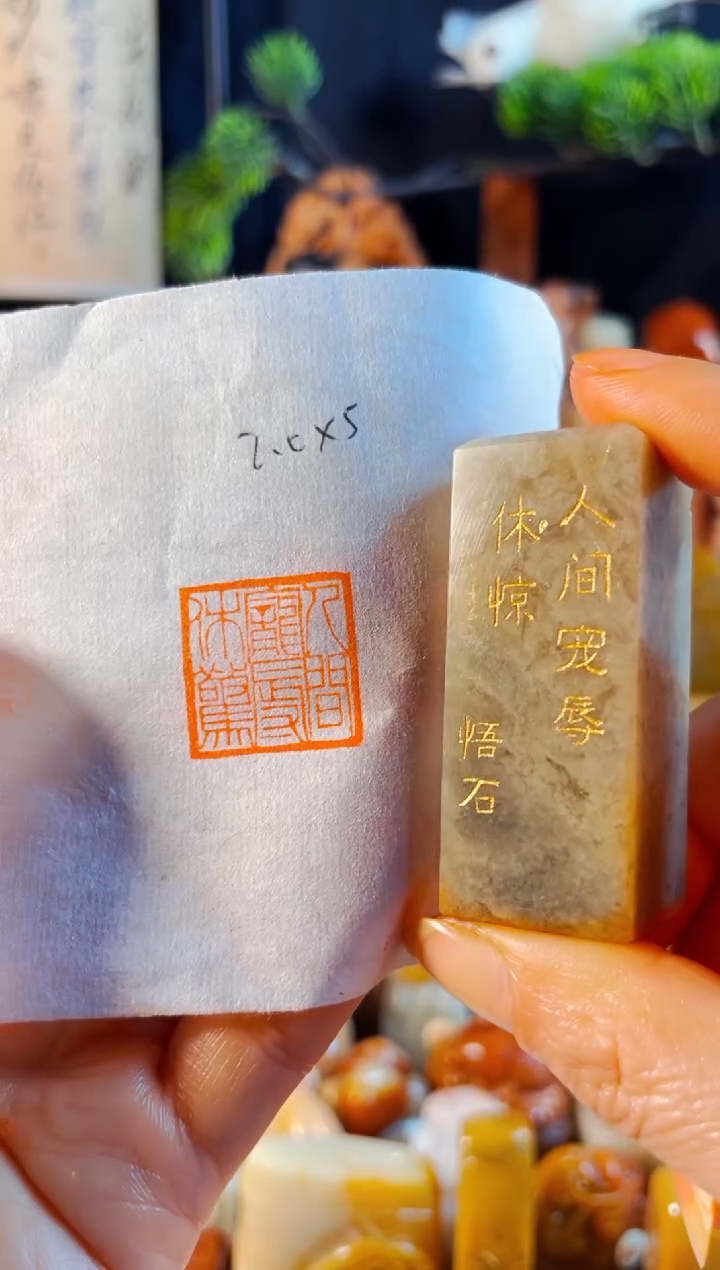 2.0×5
人間
寵辱
休驚
人间宠辱
休惊
悟石